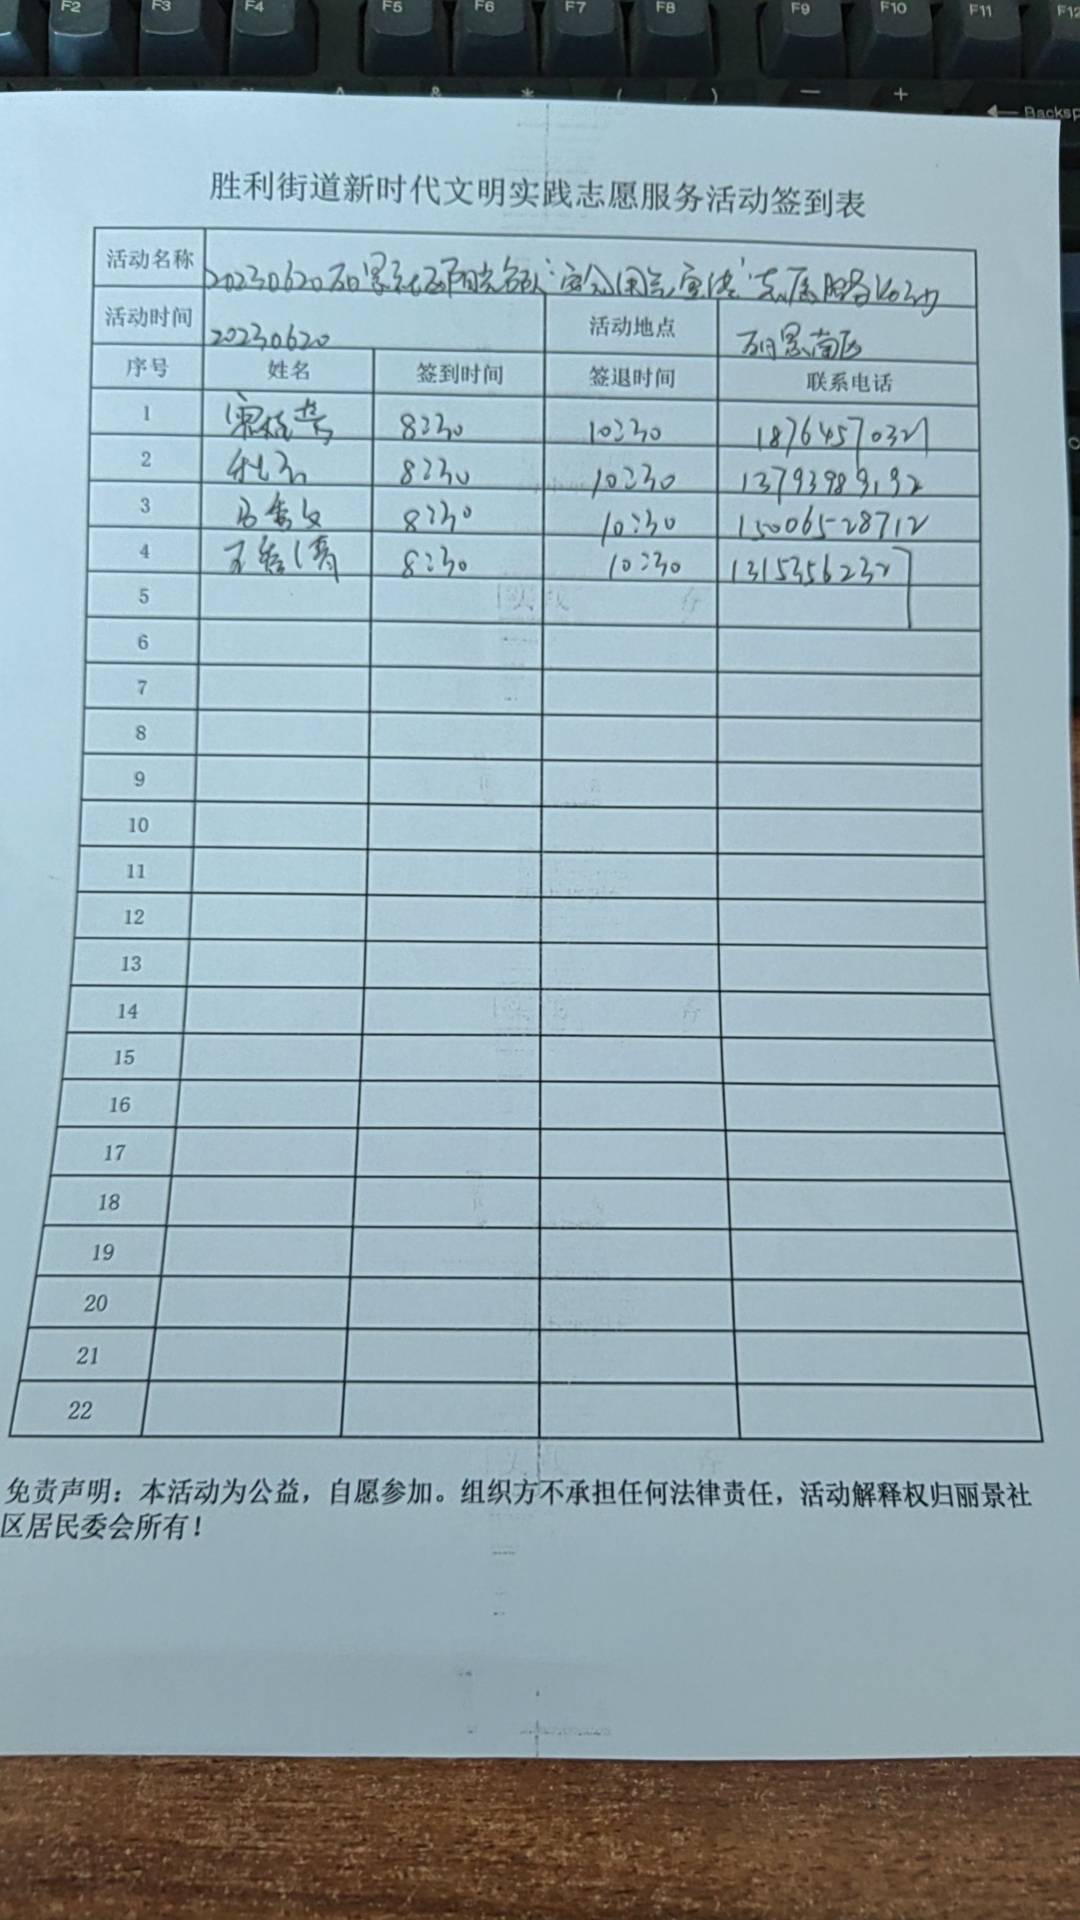 F2 F3 F4 F5 F6 F7 F8 F9 F10 F11 F12
& * ( ) — +
← Backsp
胜利街道新时代文明实践志愿服务活动签到表
活动名称 20230620丽景社区阳光名邸"安全用气宣传"志愿服务活动
活动时间 20230620 活动地点 丽景南区
序号 姓名 签到时间 签退时间 联系电话
1 8:30 10:30 18764570327
2 8:30 10:30 13793989192
3 马秀文 8:30 10:30 15006528712
4 8:30 10:30 13153562327
5
6
7
8
9
10
11
12
13
14
15
16
17
18
19
20
21
22
免责声明：本活动为公益，自愿参加。组织方不承担任何法律责任，活动解释权归丽景社
区居民委会所有！